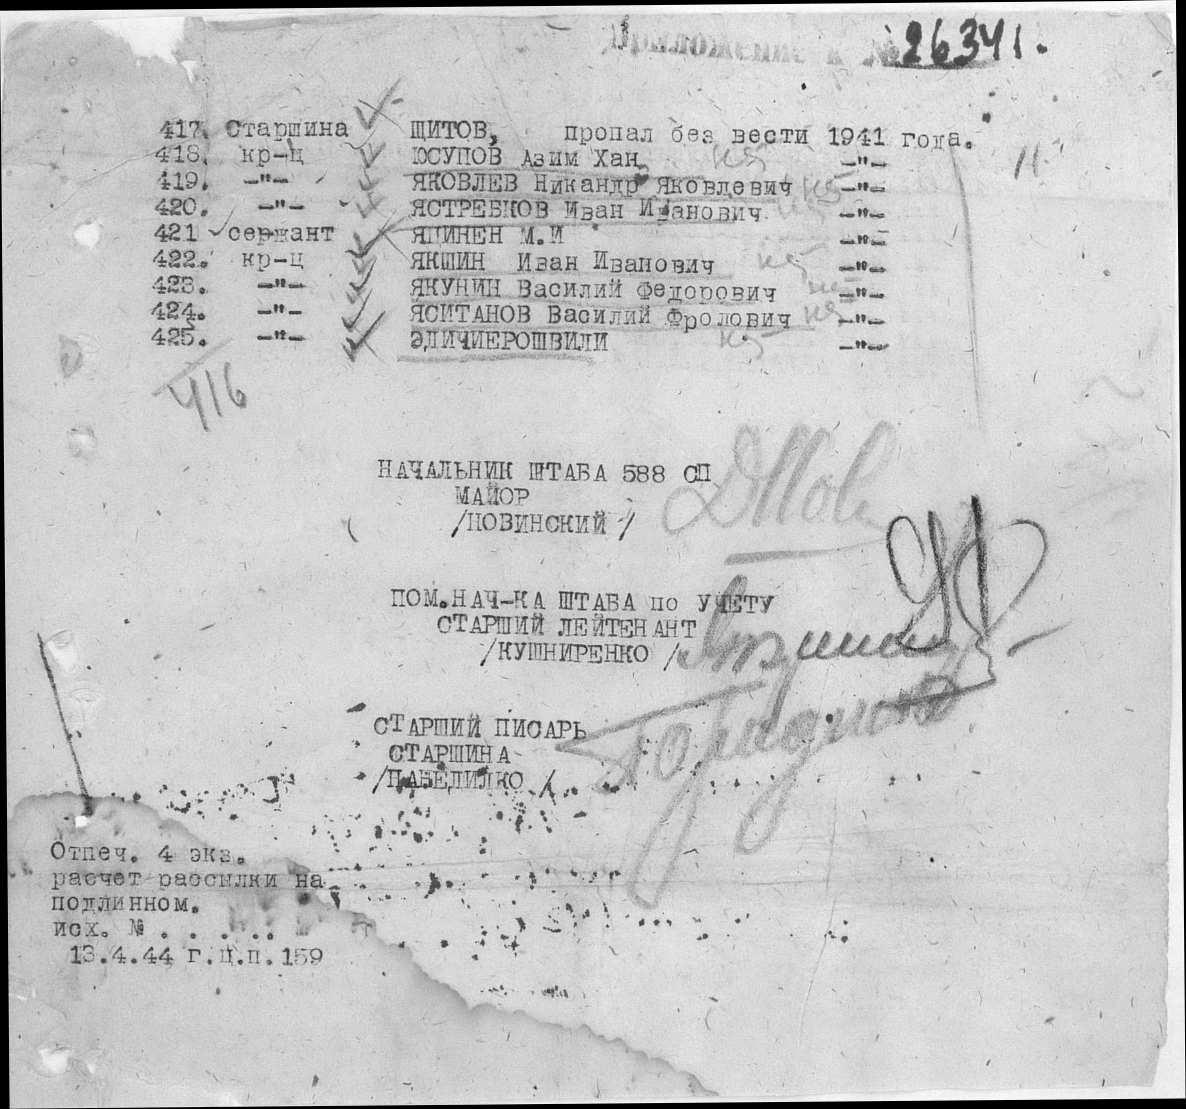 № 26341.
417. Старшина ЩИТОВ, пропал без вести 1941 года.
418. кр-ц ЮСУПОВ Азим Хан -"-
419. -"- ЯКОВЛЕВ Никандр Яковлевич -"-
420. -"- ЯСТРЕБКОВ Иван Иванович -"-
421 сержант ЯПИНЕН М.И -"-
422. кр-ц ЯКШИН Иван Иванович -"-
423. -"- ЯКУНИН Василий Федорович -"-
424. -"- ЯСИТАНОВ Василий Фролович -"-
425. -"- ЭДИЧИЕРОШВИЛИ -"-
416
НАЧАЛЬНИК ШТАБА 588 СП
МАЙОР
/НОВИНСКИЙ /
ПОМ.НАЧ-КА ШТАБА по УЧЕТУ
СТАРШИЙ ЛЕЙТЕНАНТ
/КУШНИРЕНКО /
СТАРШИЙ ПИСАРЬ
СТАРШИНА
Отпеч. 4 экз.
расчет рассылки на
подлинном.
исх. № . . . . .
13.4.44 г.ц.п.159